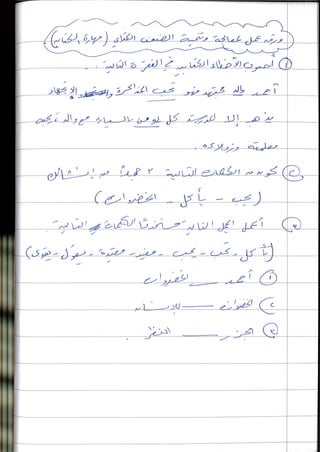 ورقة عمل لمعالجة وتنمية الضعف الكتابي (مهارة الكتابة)
① أصوب الأخطاء الكتابية في الفقرة التالية :-
أحمد والد مجتهد فهو تحب المذاكرة والاجتهاد
يذهب إلى المدرسة كل يومن بالسيارة مع والد، يحب
معلمته وزملاءه.
② كون من الكلمات التالية ٢ جملاً من إنشائك
(يحب - يأكل - الخضروات)
③ أكمل الجمل التالية مستخدمًا الكلمات التالية.
(يأكل - تحب - يحب - مفيد - مفيدة - يقول - يقوي)
① أحمد ___ الخضروات
② الخضروات ___ للإنسان
③ الجزر ___ النظر.